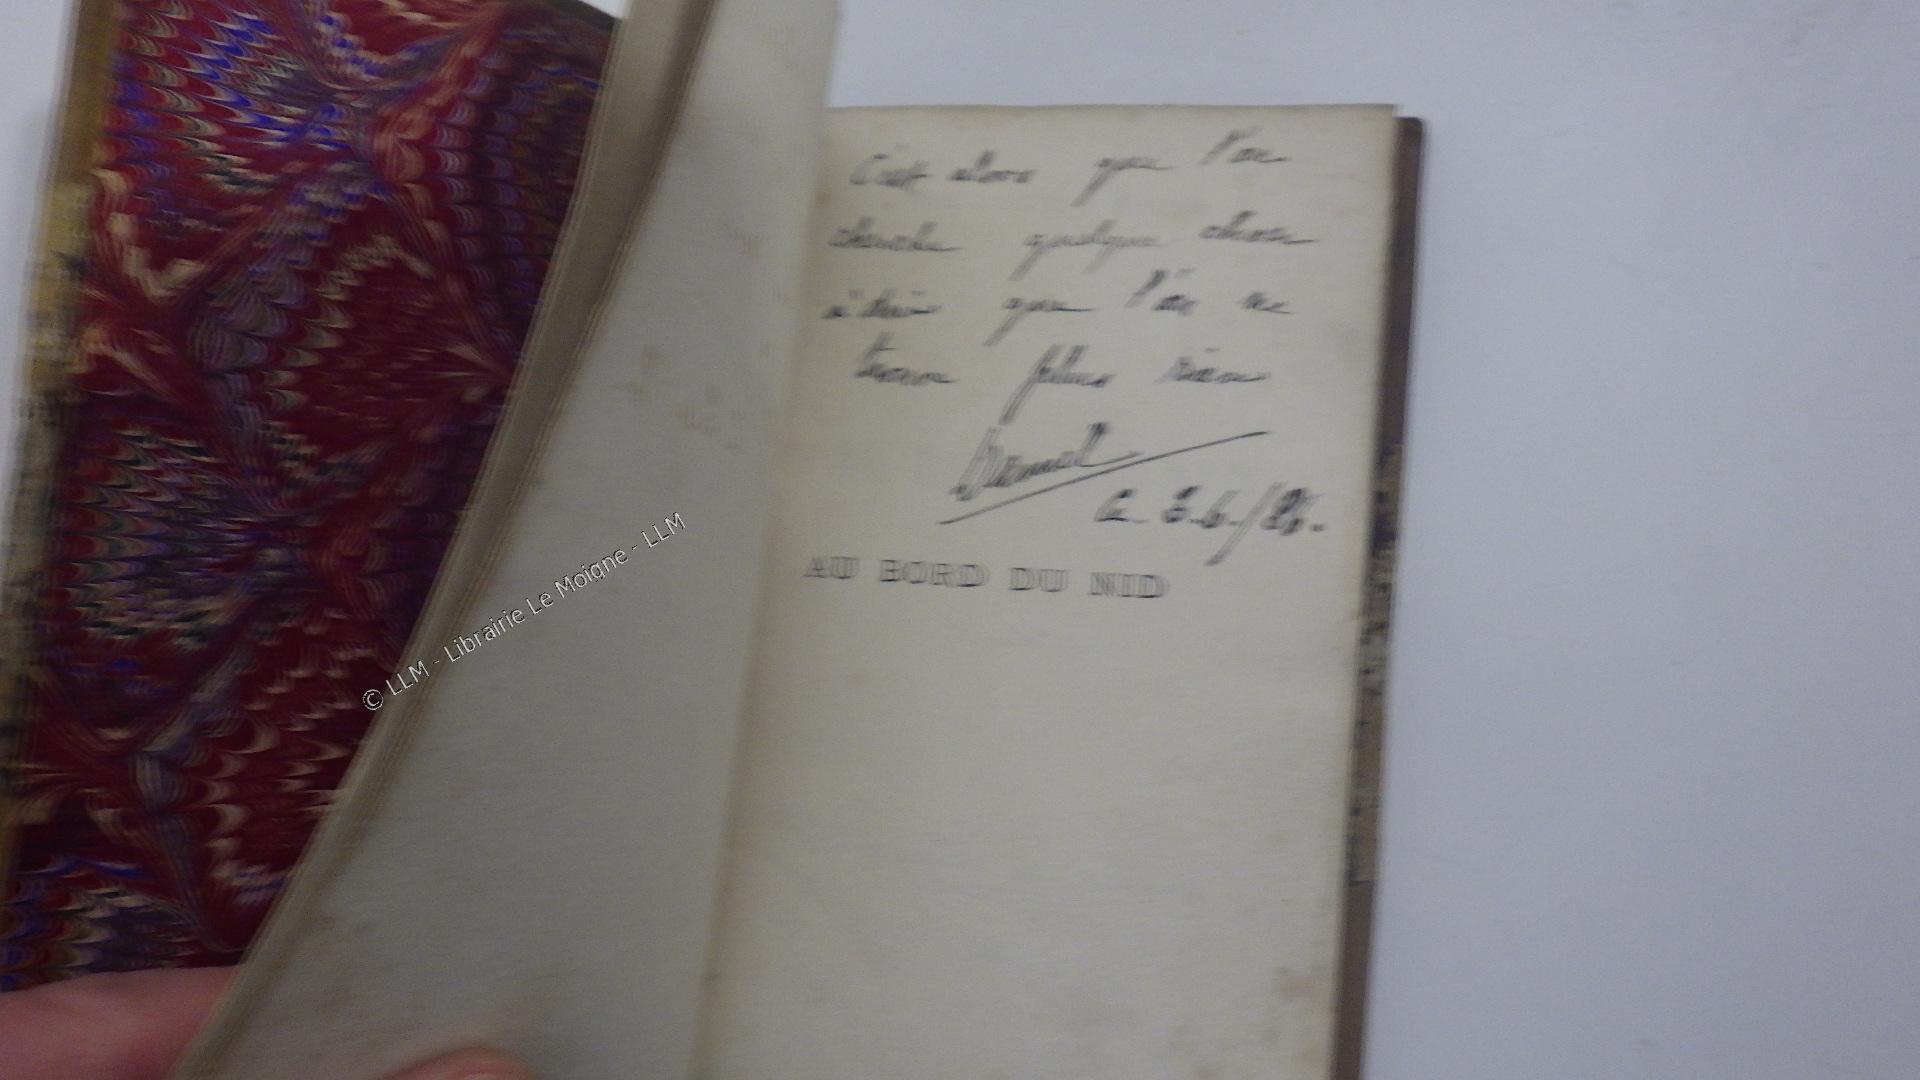 C'est alors que l'on
cherche quelque chose
à dire que l'on ne
trouve plus rien
AU BORD DU NID
© LLM - Librairie Le Moigne - LLM